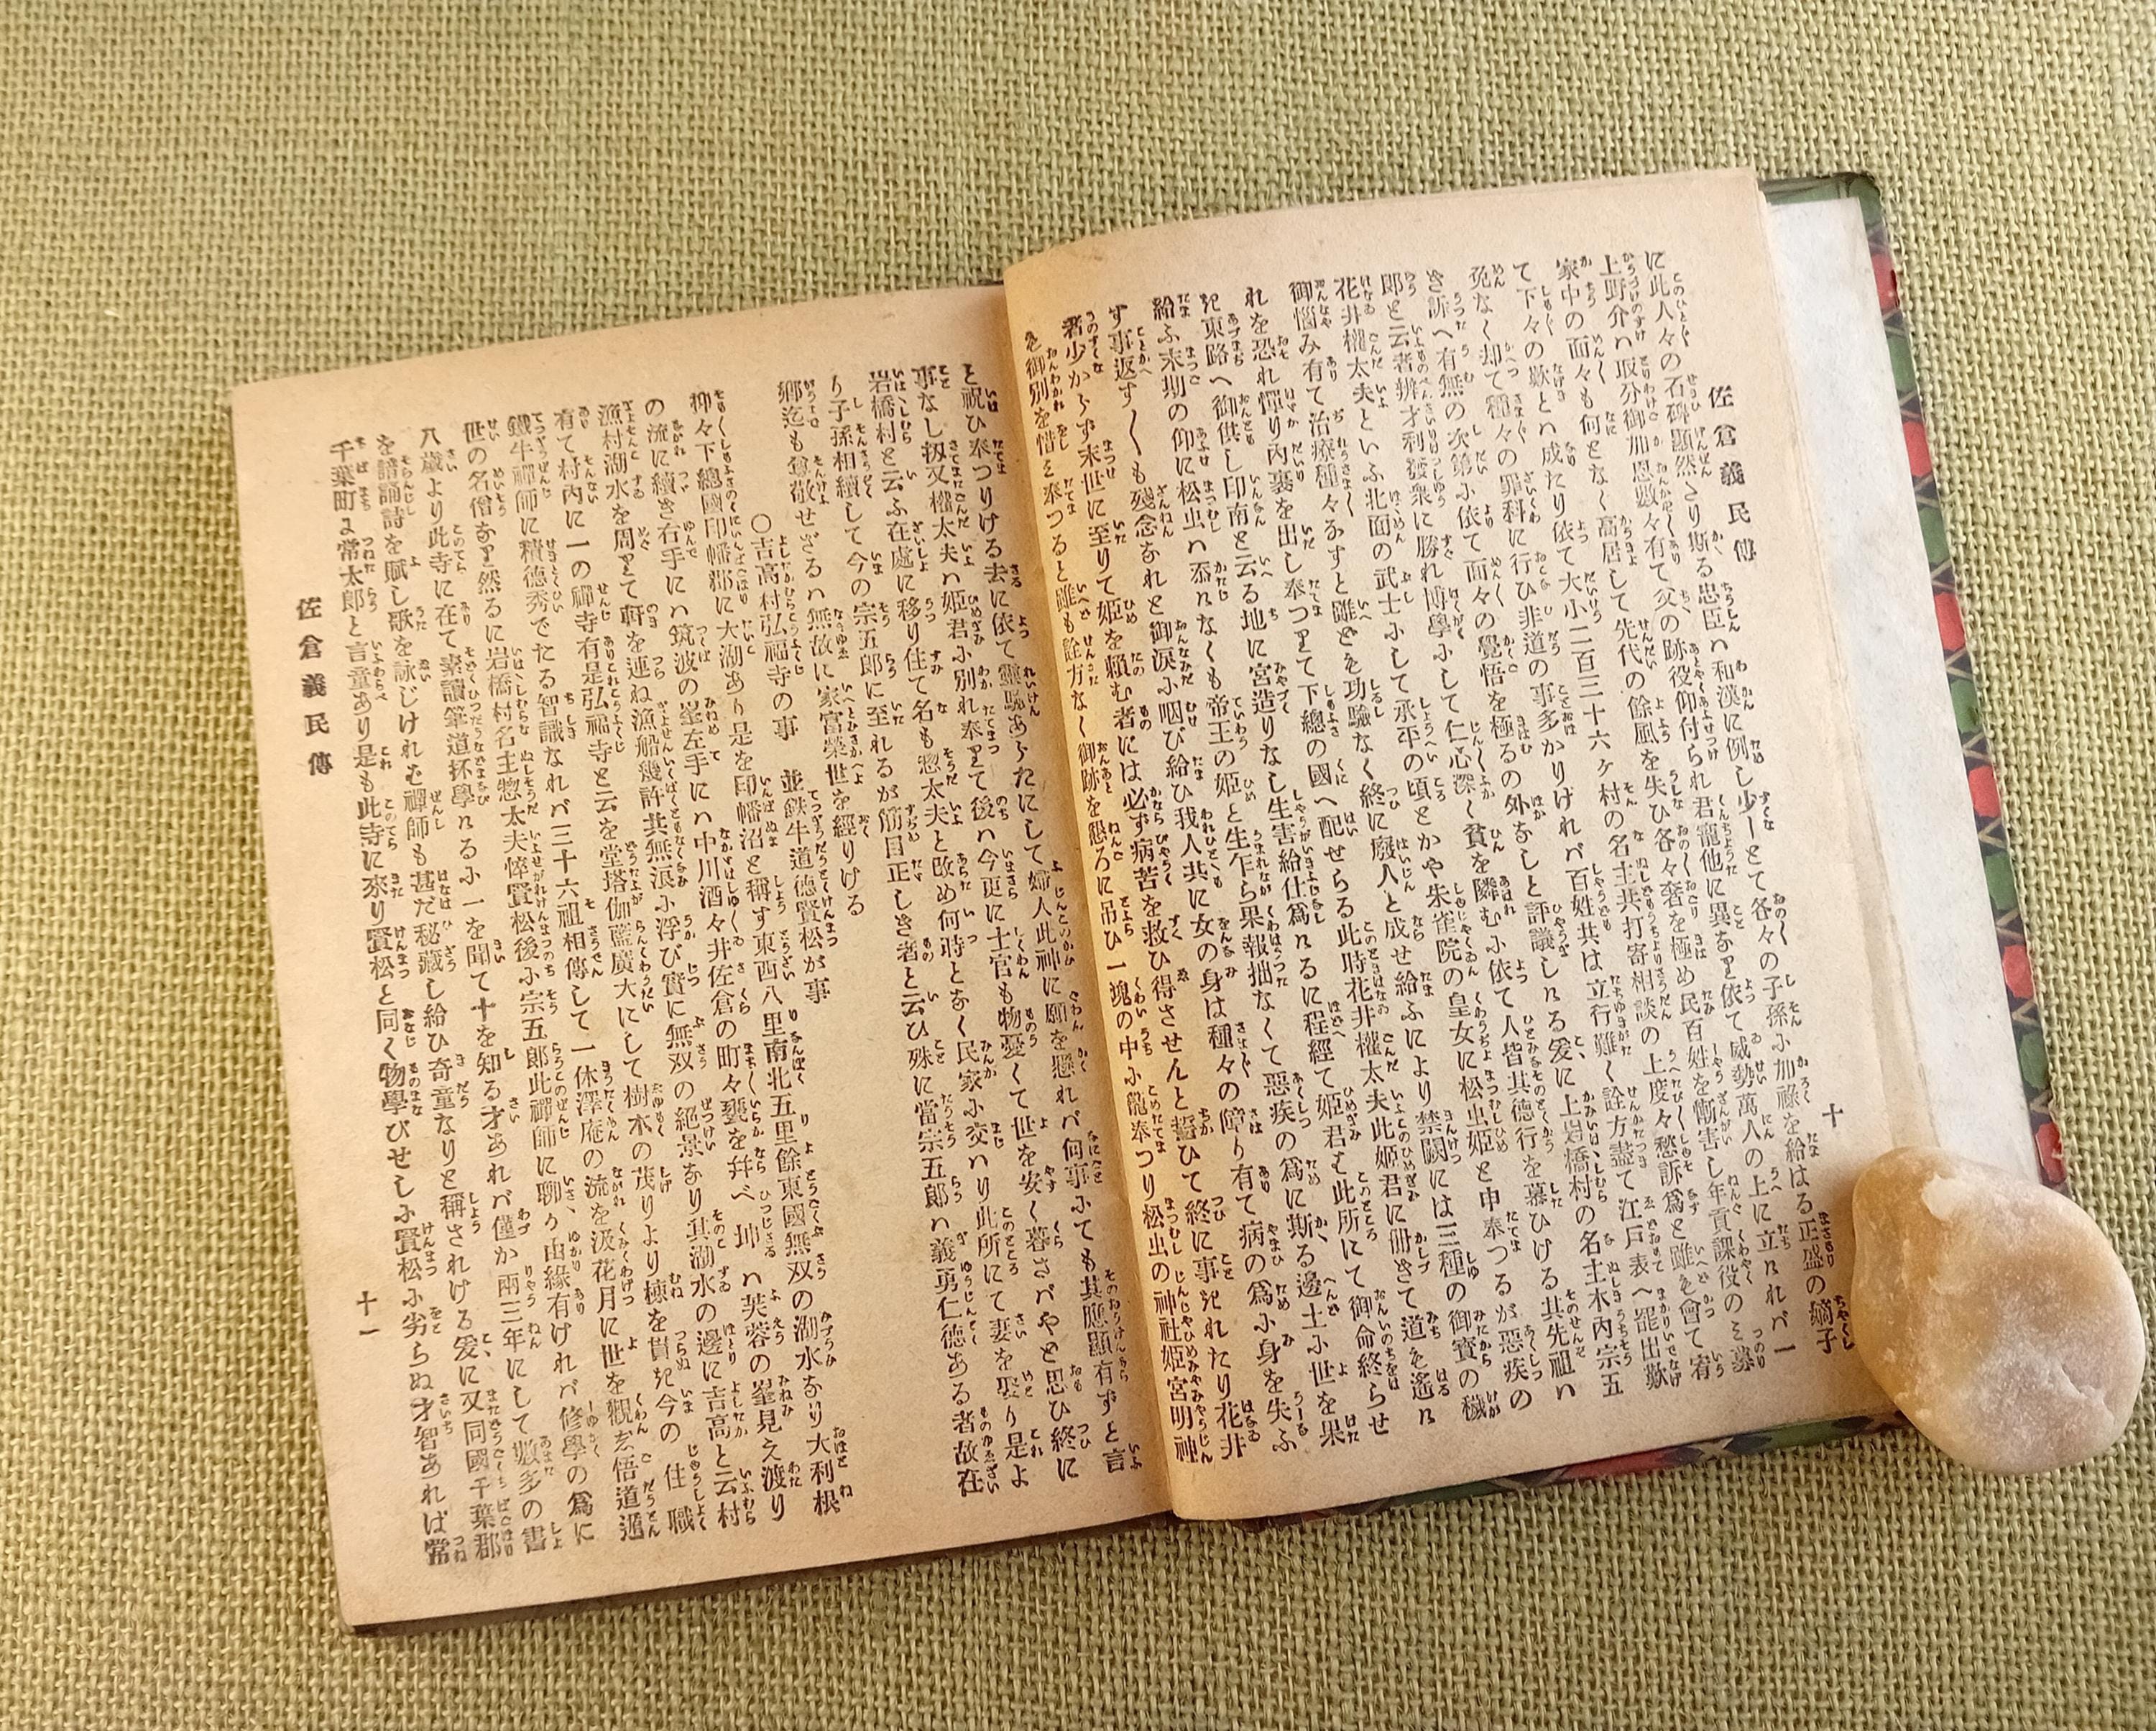 佐倉義民傳
十
に此人々の石碑顯然たり斯る忠臣ハ和漢に例し少しとて各々の子孫小加祿を給はる正盛の嫡子
上野介ハ取分御加恩數々有て父の跡役仰付られ君寵他に異なり依て威勢萬人の上に立れバ一
家中の面々も何となく高居して先代の餘風を失ひ各々奢を極め民百姓を慚害し年貢課役のミ募
て下々の歎とハ成たり依て大小二百三十六ケ村の名主共打寄相談の上度々愁訴爲と雖も會て宥
免なく却て種々の罪科に行ひ非道の事多かりけれバ百姓共は立行難く詮方盡て江戸表へ罷出歎
き訴へ有無の次第小依て面々の覺悟を極るの外なしと評議しける爰に上岩橋村の名主木内宗五
郎と云者辨才利發衆に勝れ博學小して仁心深く貧を隣む小依て人皆其德行を慕ひける其先祖ハ
花井權太夫といふ北面の武士小して承平の頃とかや朱雀院の皇女に松虫姫と申奉つるが惡疾の
御惱み有て治療種々なすと雖ども功驗なく終に廢人と成せ給ふにより禁闕には三種の御寳の穢
れを恐れ憚り内裏を出し奉つりて下總の國へ配せらる此時花井權太夫此姫君に冊きて道を遙々
東路へ御供し印南と云る地に宮造りなし生害給仕爲けるに程經て姫君も此所にて御命終らせ
給ふ末期の仰に松虫ハ忝けなくも帝王の姫と生乍ら果報拙なくて惡疾の爲に斯る邊土小世を果
す事返す〳〵も殘念なれと御淚小咽び給ひ我人共に女の身は種々の障り有て病の爲小身を失ふ
者少からず末世に至りて姫を賴む者には必ず病苦を救ひ得させんと誓ひて終に事きれたり花井
も御別を惜ミ奉つると雖も詮方なく御跡を懇ろに吊ひ一塊の中小籠奉つり松虫の神社姫宮明神
と祝ひ奉つりける去に依て靈驗あらたにして婦人此神に願を懸れバ何事ふても其應顯有ずと言
事なし扨又權太夫ハ姫君小別れ奉りて後ハ今更に士官も物憂くて世を安く暮さバやと思ひ終に
岩橋村と云ふ在處に移り住て名も惣太夫と改め何時となく民家小交ハり此所にて妻を娶り是よ
り子孫相續して今の宗五郎に至れるが筋目正しき者と云ひ殊に當宗五郎ハ義勇仁德ある者故在
鄕迄も尊敬せざるハ無故に家富榮世を經りける
〇吉高村弘福寺の事　並鉄牛道德賢松が事
抑々下總國印幡郡に大湖あり是を印幡沼と稱す東西八里南北五里餘東國無双の湖水なり大利根
の流に續き右手にハ筑波の峯左手にハ中川酒々井佐倉の町々甍を幷べ坤ハ芙蓉の峯見え渡り
漁村湖水を周りて軒を連ね漁船幾許共無浪小浮び實に無双の絕景なり其湖水の邊に吉高と云村
有て村内に一の禪寺有是弘福寺と云を堂塔伽藍廣大にして樹木の茂りより棟を貫き今の住職
鐵牛禪師に積德秀でたる智識なれバ三十六祖相傳して一休澤庵の流を汲花月に世を觀じ悟道遁
世の名僧なり然るに岩橋村名主惣太夫悴賢松後小宗五郎此禪師に聊か由緣有けれバ修學の爲に
八歲より此寺に在て素讀筆道抔學ける小一を聞て十を知る才あれバ僅か兩三年にして數多の書
を諳誦詩を賦し歌を詠じけれむ禪師も甚だ秘藏し給ひ奇童なりと稱されける爰に又同國千葉郡
千葉町よ常太郎と言童あり是も此寺に來り賢松と同く物學びせし小賢松小劣らぬ才智あれば常
佐倉義民傳
十一